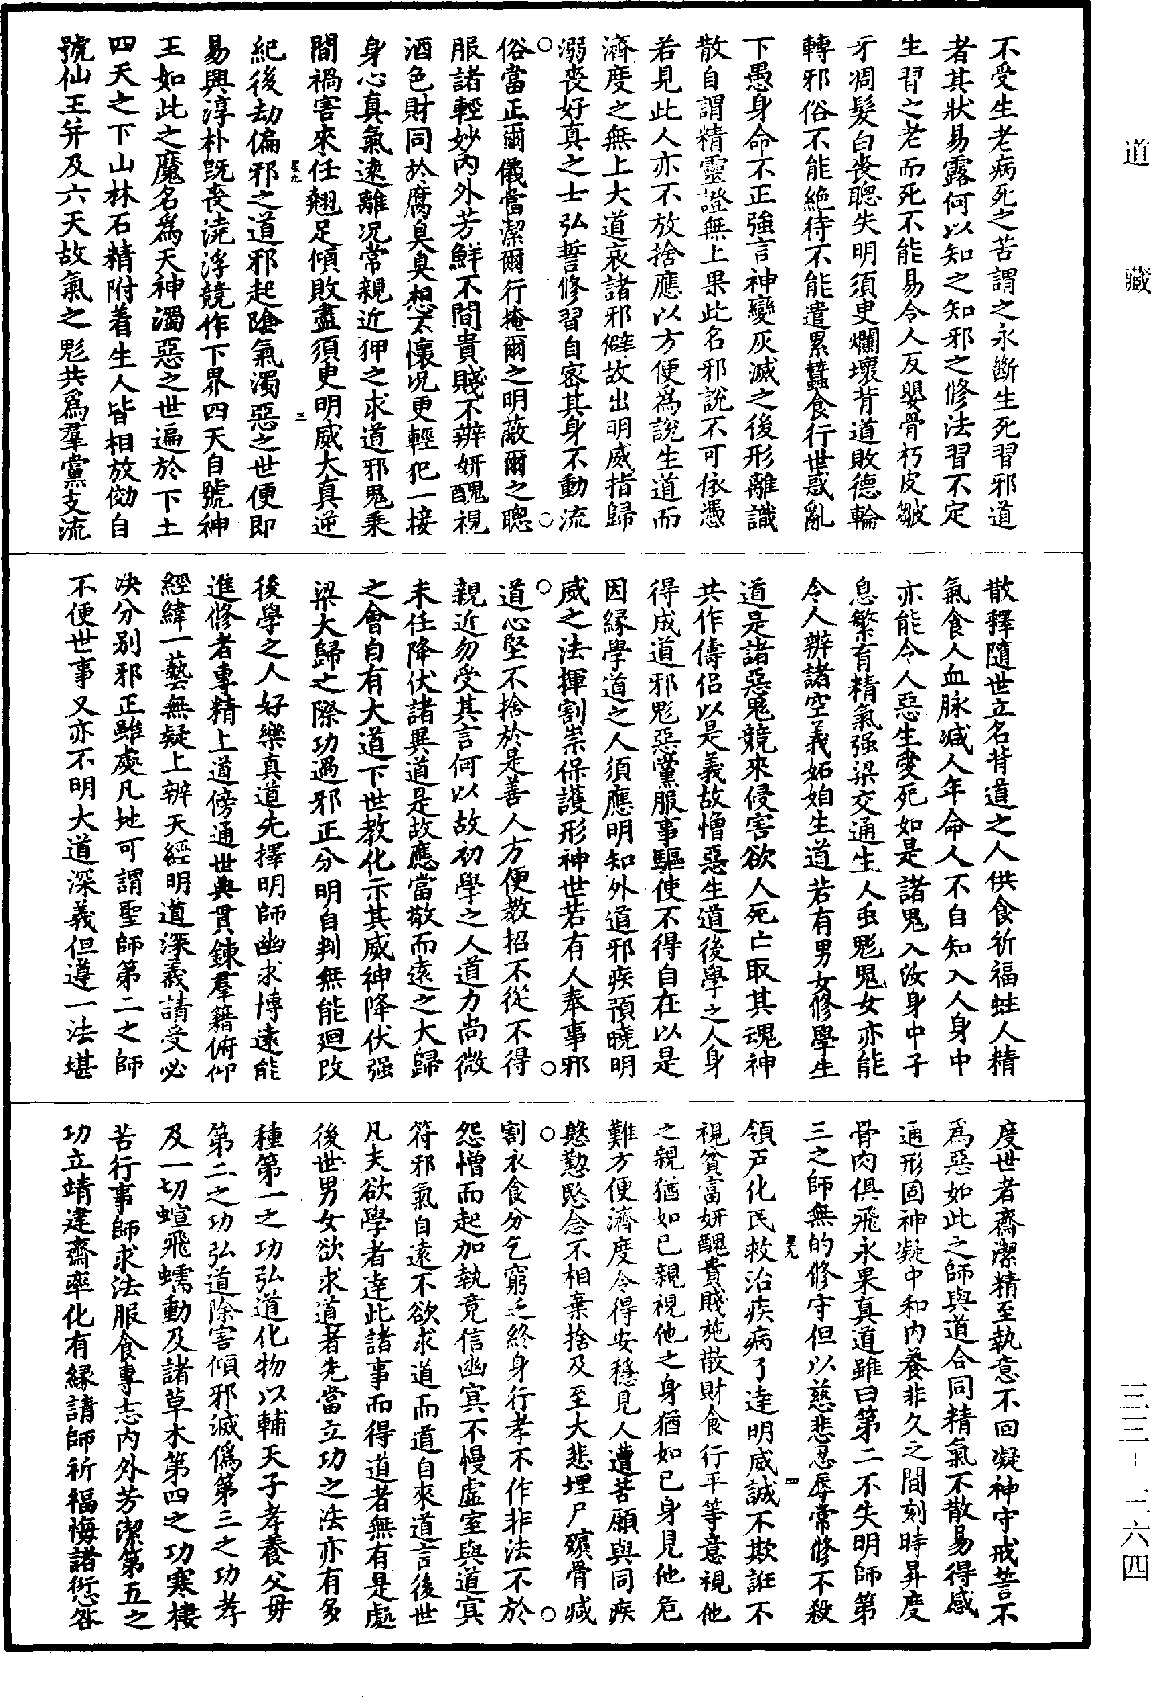 不受生老病死之苦謂之永斷生死習邪道
者其狀易露何以知之知邪之修法習不定
生習之老而死不能易令人反嬰骨朽皮皺
牙凋髮白喪聰失明須臾爛壞背道敗德輪
轉邪俗不能絕待不能遣累蠶食行世惑亂
下愚身命不正強言神變灰滅之後形離識
散自謂精靈證無上果此名邪說不可依憑
若見此人亦不放捨應以方便為說生道而
濟度之無上大道哀諸邪僻故出明威指歸
溺喪好真之士弘誓修習自密其身不動流
俗當正爾儀當潔爾行掩爾之明蔽爾之聰
服諸輕妙內外芳鮮不間貴賤不辦妍醜視
酒色財同於腐臭臭想不懷况更輕犯一接
身心真氣遠離况常親近狎之求道邪鬼乘
間禍害來任翹足傾敗盡須臾明威大真逆
紀後劫偏邪之道邪起陰氣濁惡之世便即
易興淳朴既喪澆浮競作下界四天自號神
王如此之魔名為天神濁惡之世遍於下土
四天之下山林石精附着生人皆相放傚自
號仙王并及六天故氣之鬽共為羣黨支流
散釋隨世立名背道之人供食祈福蛀人精
氣食人血脉減人年命人不自知入人身中
亦能令人惡生愛死如是諸鬼入汝身中子
息繁有精氣强梁交通生人䖝鬽鬼女亦能
令人辦諸空義妬姐生道若有男女修學生
道是諸惡鬼競來侵害欲人死亡取其魂神
共作儔侶以是義故憎惡生道後學之人身
得成道邪鬽惡黨服事驅使不得自在以是
因緣學道之人須應明知外道邪疾預曉明
威之法揮割祟保護形神世若有人奉事邪
道心堅不捨於是善人方便教招不從不得
親近勿受其言何以故初學之人道力尚微
未任降伏諸異道是故應當敬而遠之大歸
之會自有大道下世教化示其威神降伏强
梁大歸之際功過邪正分明自判無能廻改
後學之人好樂真道先擇明師幽求博遠能
進修者專精上道傍通世典貫鍊羣籍俯仰
經緯一藝無疑上辨天經明道深義請受必
决分別邪正雖處凡地可謂聖師第二之師
不便世事又亦不明大道深義但遵一法堪
度世者齋潔精至執意不回凝神守戒誓不
為惡如此之師與道合同精氣不散易得感
通形固神凝中和內養非久之間刻時昇度
骨肉俱飛永果真道雖曰第二不失明師第
三之師無的修守但以慈悲忍辱常修不殺
領戶化民救治疾病了達明威誠不欺誑不
視貧富妍醜貴賤施散財食行平等意視他
之親猶如己親視他之身猶如己身見他危
難方便濟度令得安穩見人遭苦願與同疾
慇懃愍念不相棄捨及至大悲埋尸殯骨減
割衣食分乞窮乏終身行孝不作非法不於
怨憎而起加執竟信幽㝠不慢虛室與道㝠
符邪氣自遠不欲求道而道自來道言後世
凡夫欲學者達此諸事而得道者無有是處
後世男女欲求道者先當立功之法亦有多
種第一之功弘道化物以輔天子孝養父母
第二之功弘道除害傾邪滅僞第三之功孝
及一切蝖飛蠕動及諸草木第四之功寒棲
苦行事師求法服食專志內外芳潔第五之
功立靖建齋率化有緣請師祈福悔諸愆咎
道藏
三三-一六四